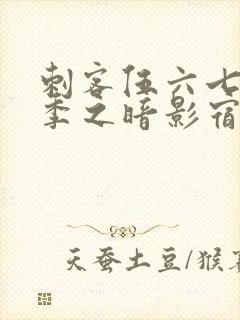 刺客伍六七
季之暗影宿
天蚕土豆/猴